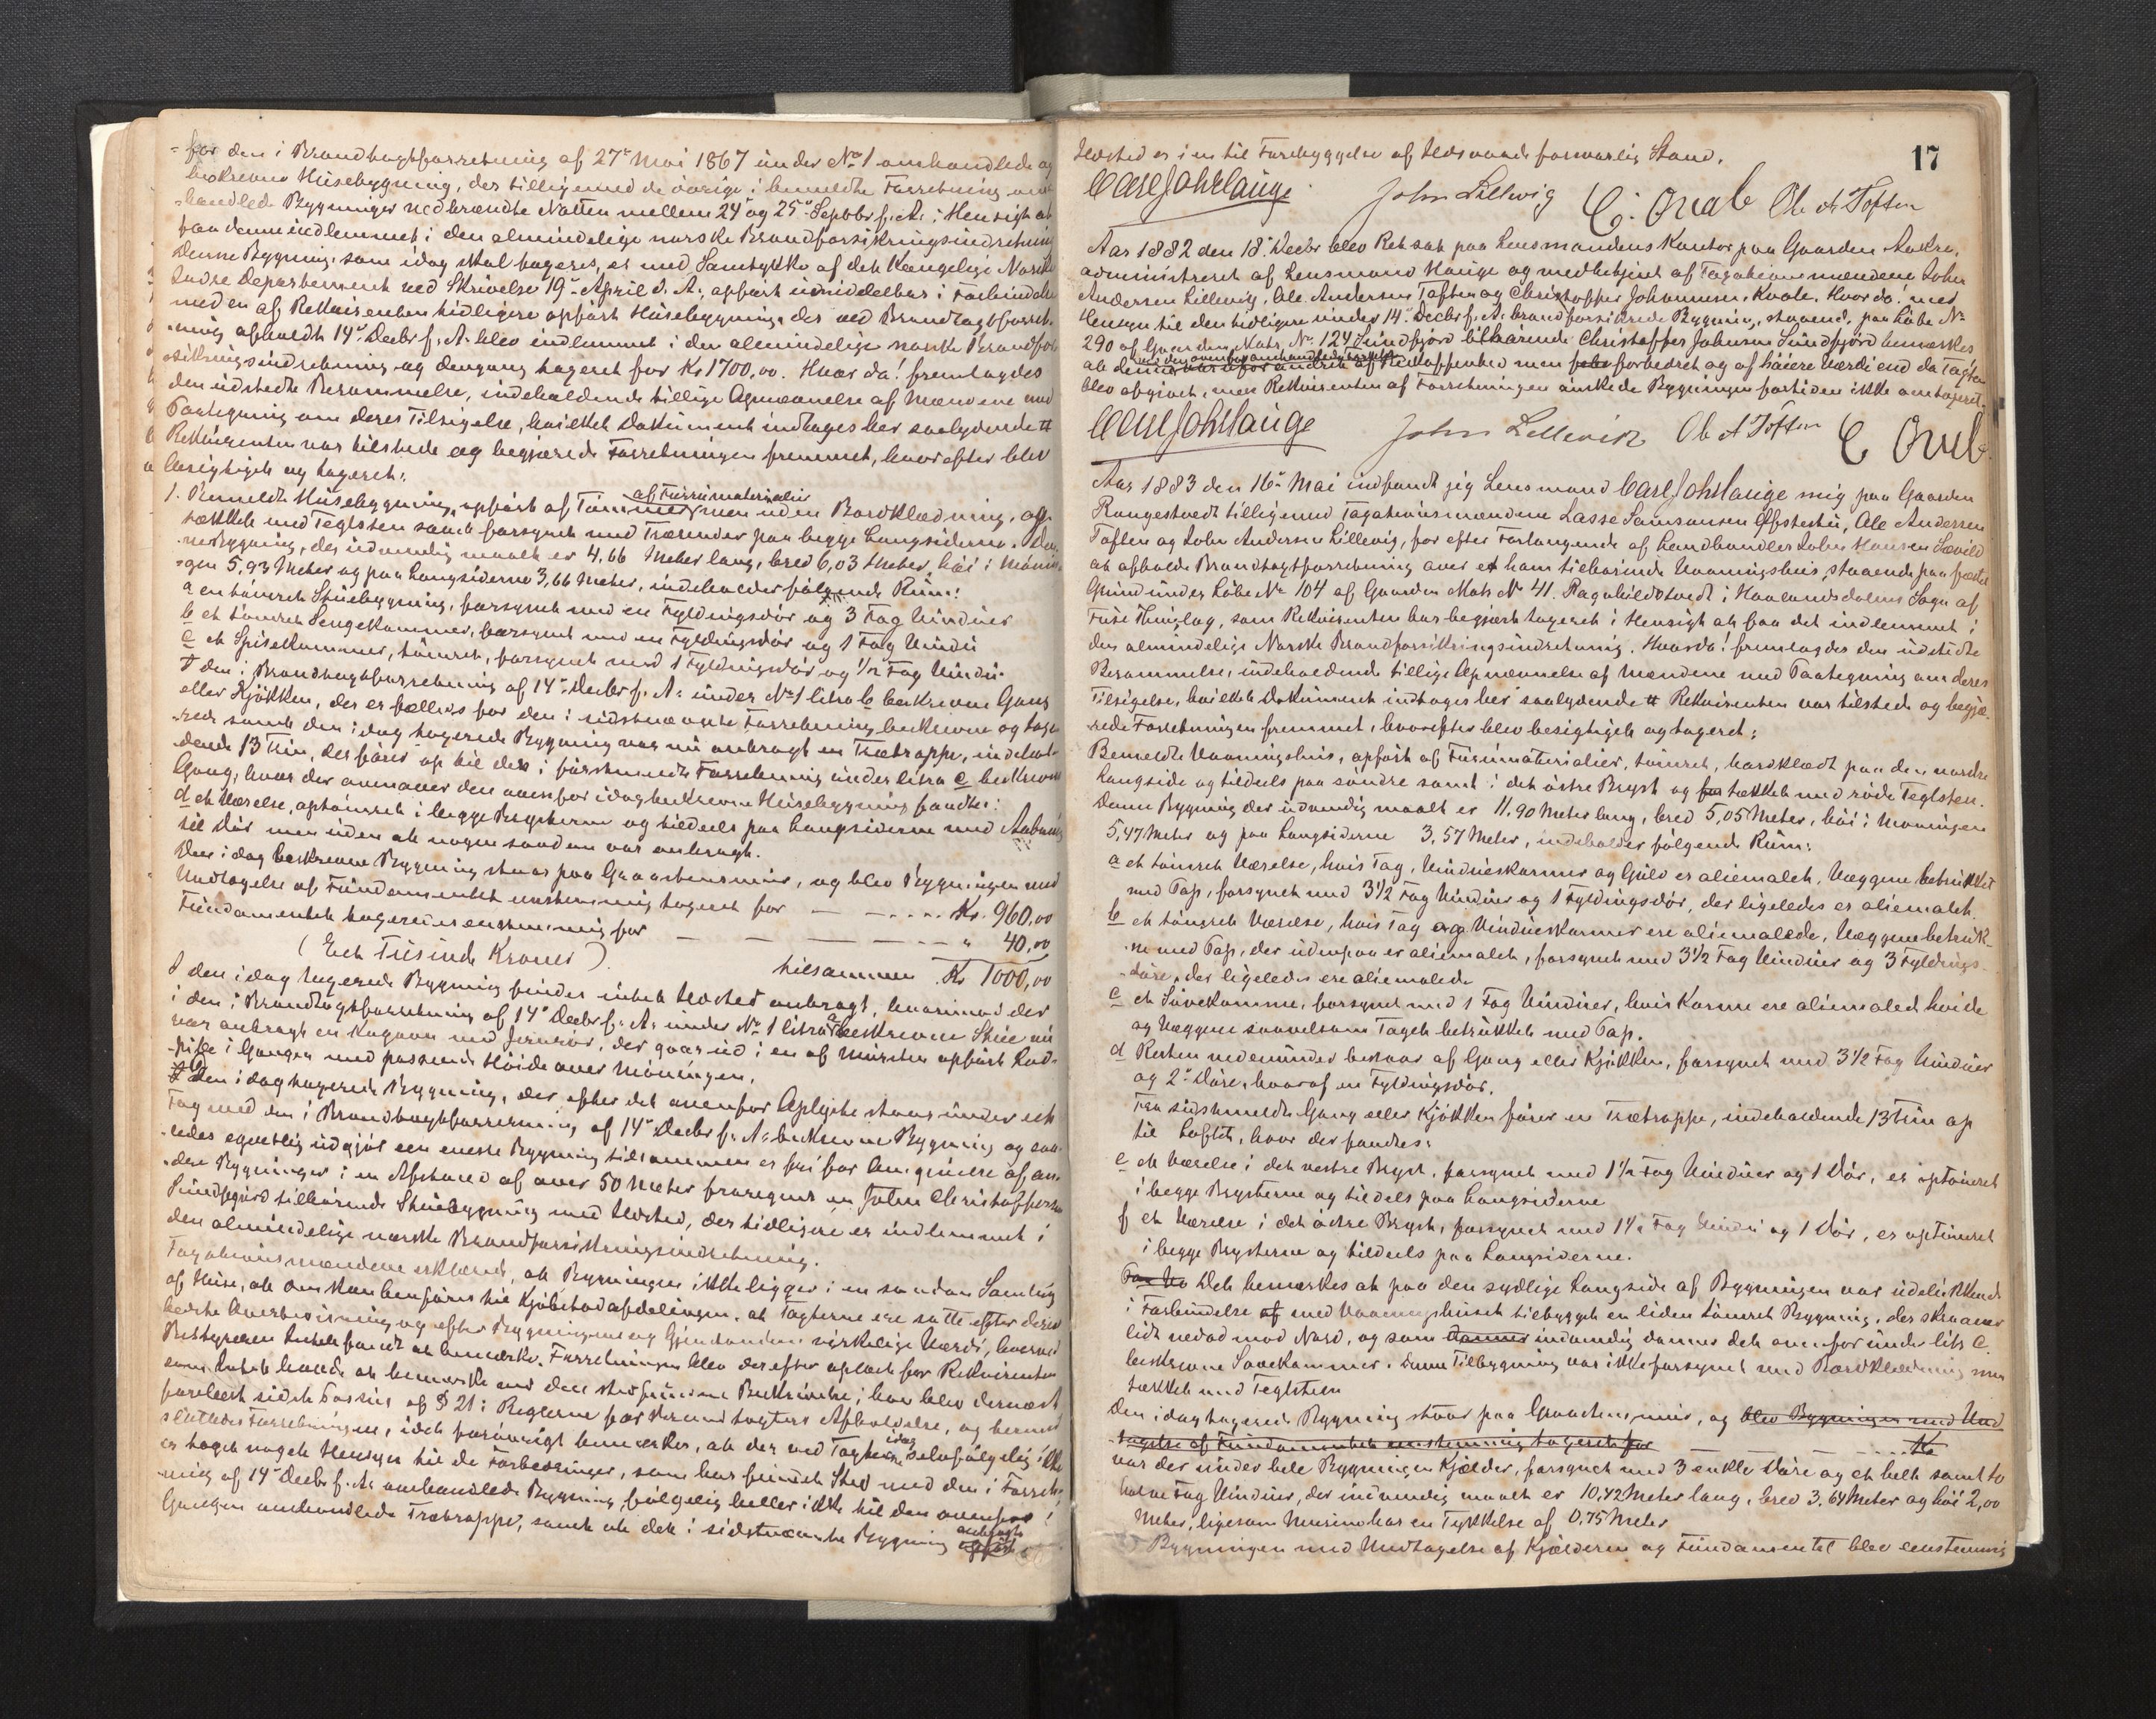 for den i Brandtagtforretning af 27de Mai 1867 under No 1 omhandlede og
beskrevne Husebygning, der tilligemed de övrige i bemeldte Forretning om-
handlede Bygninger nedbrændte Natten mellem 24de og 25de Septbr f. A. i Hensigt at
faa denne indlemmet i den almindelige norske Brandforsikringsindretning
Denne Bygning, som idag skal taxeres, er med Samtykke af det Kongelige Norske
Indre Departement ved Skrivelse 19de April d. A., opfört umiddelbar i Forbindelse
med en af Rekvirenten tidligere opfört Husebygning, der ved Brandtagtforret-
ning afholdt 14de Decbr f. A. blev indlemmet i den almindelige norske Brandfor-
sikringsindretning og dengang taxeret for Kr 1700,00. Hvor da! fremlagdes
den udstedte Berammelse, indeholdende tillige Opnævnelse af Mændene med
Paategning om deres Tilsigelse, hvilket Dokument indtages her saalydende #
Rekvirenten var tilstede og begjærede Forretningen fremmet, hvorefter blev
besigtiget og taxeret:
1. Bemeldte Husebygning, opfört af Tömmer af Furrumaterialier men uden Bordklædning, og
tækket med Teglsten samt forsynet med Trærender paa begge Langsiderne. Den-
ne Bygning, der udvendig maalt er 4,66 Meter lang, bred 6,03 Meter, höi i Mönin-
gen 5,93 Meter og paa Langsiderne 3,66 Meter, indeholder fölgende Rum:
a en tömret Stuebygning, forsynet med en Fyldingsdör og 3 Fag Vinduer
b et tömret Sengekammer, forsynet med en Fyldingsdör og 1 Fag Vindu
c et Spisekammer, tömret, forsynet med 1 Fyldingsdör og 1/2 Fag Vindu
I den i Brandtagtforretning af 14de Decbr f. A. under No 1 litra b beskrevne Gang
eller Kjökken, der er fælleds for den i sidstnævnte Forretning beskrevne og taxe-
rede samt den idag taxerede Bygning var nu anbragt en Trætrappe, indehol-
dende 13 Trin, der förer op til den i förstnævnte Forretning under litra e beskrevne
Gang, hvor der ovenover den ovenfor idag beskrevne Husebygning fandtes:
d et Værelse, optömret i begge Brysterne og tildeels paa Langsiderne med Aabning
til Dör men uden at nogen saadan var anbragt.
Den idag beskrevne Bygning staar paa Graastensmuur, og blev Bygningen med
Undtagelse af Fundamentet enstemmig taxeret for — — .... Kr. 960,00
Fundamentet taxeredes enstemmig for — — — — — " 40,00
(Eet Tusinde Kroner) tilsammen Kr 1000,00
I den idag taxerede Bygning findes intet Ildsted anbragt, hvorimod der
i den i Brandtagtforretning af 14de Decbr f. A. under No 1 litra a beskrevne Stue nu
var anbragt en Kogeovn med Jernrör, der gaar ud i en af Mursten opfört Rad-
pibe i Gangen med passende Höide over Möningen.
Den idag taxerede Bygning, der efter det ovenfor Oplyste staar under eet
Tag med den i Brandtagtforretning af 14de Decbr f. A. beskrevne Bygning og saa-
ledes egentlig udgjör een eneste Bygning tilsammen er fri for Omgivelse af an-
dre Bygninger i en Afstand af over 50 Meter fraregnet en John Christoffersen
Sundfjord tilhörende Stuebygning med Ildsted, der tidligere er indlemmet i
den almindelige norske Brandforsikringsindretning.
Tagationsmændene erklærede, at Bygningen ikke ligger i en saadan Samling
af Huse, at den kan henföres til Kjöbstadafdelingen, at Tagterne ere satte efter deres
bedste Overbeviisning og efter Bygningernes og Gjenstandenes virkelige Værdi, hvorved
Bestyreren Intet fandt at bemærke. Forretningen blev derefter oplæst for Rekvirenten
som Intet havde at bemærke ved den stedfundne Beskrivelse; han blev dernæst
forelæst sidste Passus af § 21 i Reglerne for Brandtagters Afholdelse, og hermed
sluttedes Forretningen, idet forövrigt bemærkes, at der ved Tagten idag selvfölgelig ikke
er taget noget Hensyn til de Forbedringer, som har fundet Sted med den i Forret-
ning af 14de Decbr f. A. omhandlede Bygning, fölgelig heller ikke til den ovenfor i
Gangen omhandlede Trætrappe, samt at det i sidstnævnte Bygning anbragte
17
Ildsted er i en til Forebyggelse af Ildsvaade forsvarlig Stand.
Carl Joh Hauge John Lillevig C. Qvale Ole A Toften
Aar 1882 den 18de Decbr blev Retsat paa Lensmandens Kontor paa Gaarden
administreret af Lensmand Hauge og medbetjent af Tagationsmændene John
Andersen Lillevig, Ole Andersen Toften og Christoffer Johannesen Kvale. Hvor da! med
Hensyn til den tidligere under 14de Decbr f. A. brandforsikrede Bygning, staaende paa Löbe No
290 af Gaarden Matr. No. 124 Sundfjord tilhörende Christoffer Johnsen Sundfjord bemærkes
at denne med den ovenfor omhandlede var uforandret af Beskaffenhed men forbedret og af höiere Værdi end da Tagten
blev afgivet, men Rekvirenten af Forretningen önskede Bygningen fortiden ikke omtaxeret.
Carl Joh Hauge John Lillevik Ole A Toften C Qvale
Aar 1883 den 16de Mai indfandt jeg Lensmand Carl Joh Hauge mig paa Gaarden
Rangestvedt tilligemed Tagationsmændene Lasse Samsonsen Øfstestu, Ole Andersen
Toften og John Andersen Lillevig, for efter Forlangende af Landhandler John Hansen Sævild
at afholde Brandtagtforretning over et ham tilhörende Vaaningshus, staaende paa fæstet
Grund under Löbe No 104 af Gaarden Matr No 41. Ragnhildstvedt i Haalandsdalens Sogn af
Fuse Thinglag, som Rekvirenten har begjært taxeret i Hensigt at faa det indlemmet i
den almindelige Norske Brandforsikringsindretning. Hvorda! fremlagdes den udstedte
Berammelse, indeholdende tillige Opnævnelse af Mændene med Paategning om deres
Tilsigelse, hvilket Dokument indtages her saalydende # Rekvirenten var tilstede og begjæ-
rede Forretningen fremmet, hvorefter blev besigtiget og taxeret:
Bemeldte Vaaningshus, opfört af Furumaterialier, tömret, bordklædt paa den nordre
Langside og tildeels paa söndre samt i det östre Bryst og for tækket med röde Teglsten.
Denne Bygning der udvendig maalt er 11,90 Meter lang, bred 5,05 Meter, höi i Möningen
5,47 Meter og paa Langsiderne 3,57 Meter, indeholder fölgende Rum:
a et tömret Værelse, hvis Tag, Vindueskarmer og Gulv er oliemalet, Væggene betrukket
med Tap, forsynet med 3 1/2 Fag Vinduer og 1 Fyldingsdör, der ligeledes er oliemalet.
b et tömret Værelse, hvis Tag og Vindueskarmer ere oliemalede, Væggene betruk-
ne med Tap, der udenpaa er oliemalet, forsynet med 3 1/2 Fag Vinduer og 3 Fyldings-
döre, der ligeledes ere oliemalede
c et Sovekammer, forsynet med 1 Fag Vinduer, hvis Karme ere oliemalet hvide
og Væggene saavelsom Taget betrukket med Tap.
d Resten nedenunder bestaar af Gang eller Kjökken, forsynet med 3 1/2 Fag Vinduer
og 2de Döre, hvoraf en Fyldingsdör.
Fra sidstmeldte Gang eller Kjökken förer en Trætrappe, indeholdende 13 Trin op
til Loftet, hvor der fandtes:
e et Værelse i det vestre Bryst, forsynet med 1 1/2 Fag Vinduer og 1 Dör, er optömret
i begge Brysterne og tildels paa Langsiderne
f et Værelse i det östre Bryst, forsynet med 1 1/2 Fag Vindu og 1 Dör, er optömret
i begge Brysterne og tildeels paa Langsiderne.
Det bemærkes at paa den sydlige Langside af Bygningen var udelukkende
i Forbindelse af med Vaaningshuset tilbygget en liden tömret Bygning, der skraaner
lidt nedad mod Nord, og som danner indvendig danner det ovenfor under litr c.
beskrevne Sovekammer. Denne Tilbygning var ikke forsynet med Bordklædning men
tækket med Teglsten
Den idag taxerede Bygning staar paa Graastensmuur, og blev Bygningen med Und
tagelse af Fundamentet enstemmig taxeret for .... Kr
var der under hele Bygningen Kjælder, forsynet med 3 enkle Döre og et helt samt to
halve Fag Vinduer, der indvendig maalt er 10,42 Meter lang, bred 3,64 Meter og höi 2,00
Meter, ligesom Murene har en Tykkelse af 0,75 Meter
Bygningen med Undtagelse af Kjælderen og Fundamentet blev eenstemmig